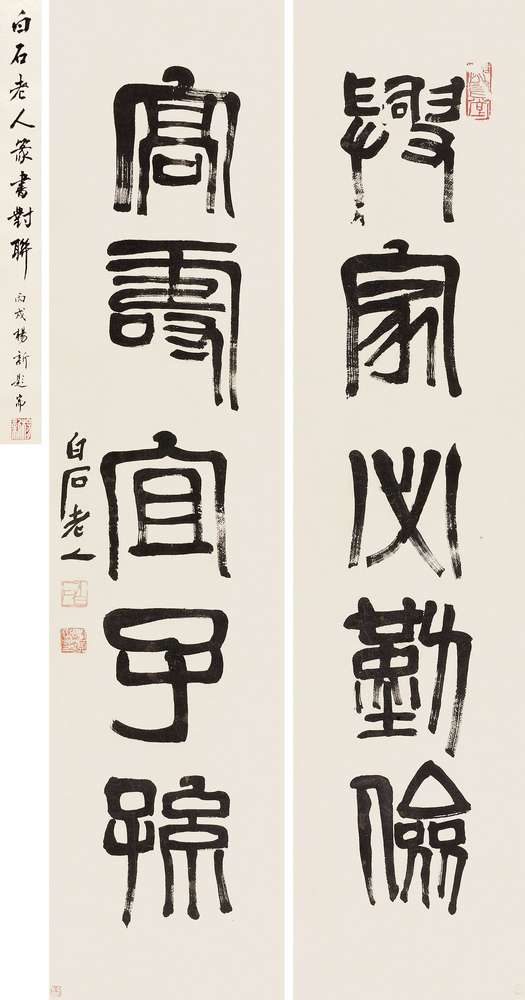 興家必勤儉
高壽宜子孫
白石老人
白石老人篆書對聯
丙戌楊新題耑